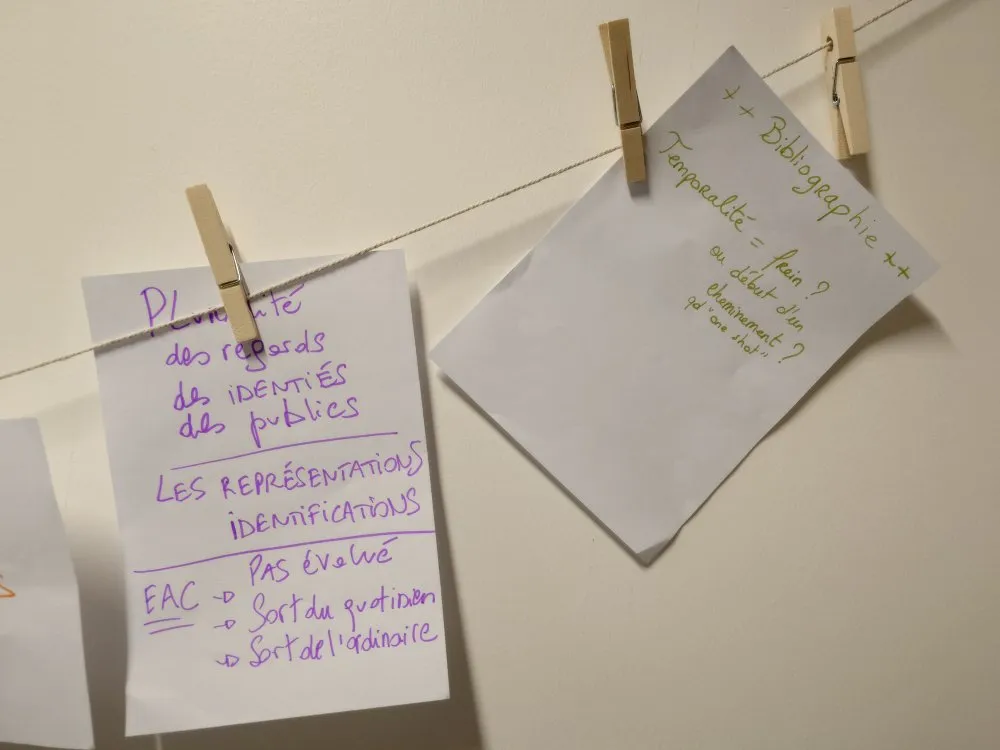 PLuralité
des regards
des iDENTiÉS
des publics
LES REPRÉSENTATIONS
iDENTiFiCATiONS
EAC → PAS évalué
→ Sort du quotidien
→ Sort de l'ordinaire
++ Bibliographie ++
Temporalité = frein ?
ou début d'un
cheminement ?
qd "one shot"